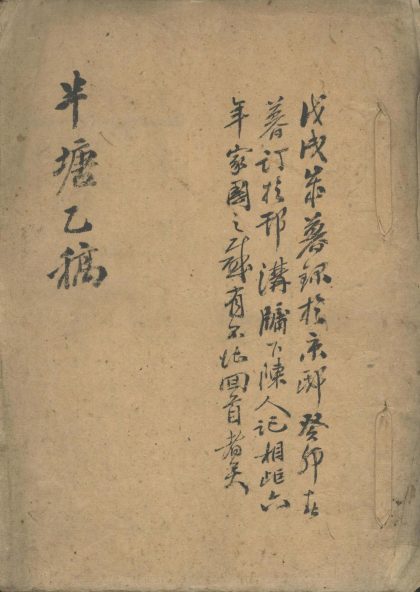 戊戌歲暮錄於京邸癸卯春
暮訂於邗溝牖下陳人記相距六
年家國之感有不堪回首者矣
半塘乙稿